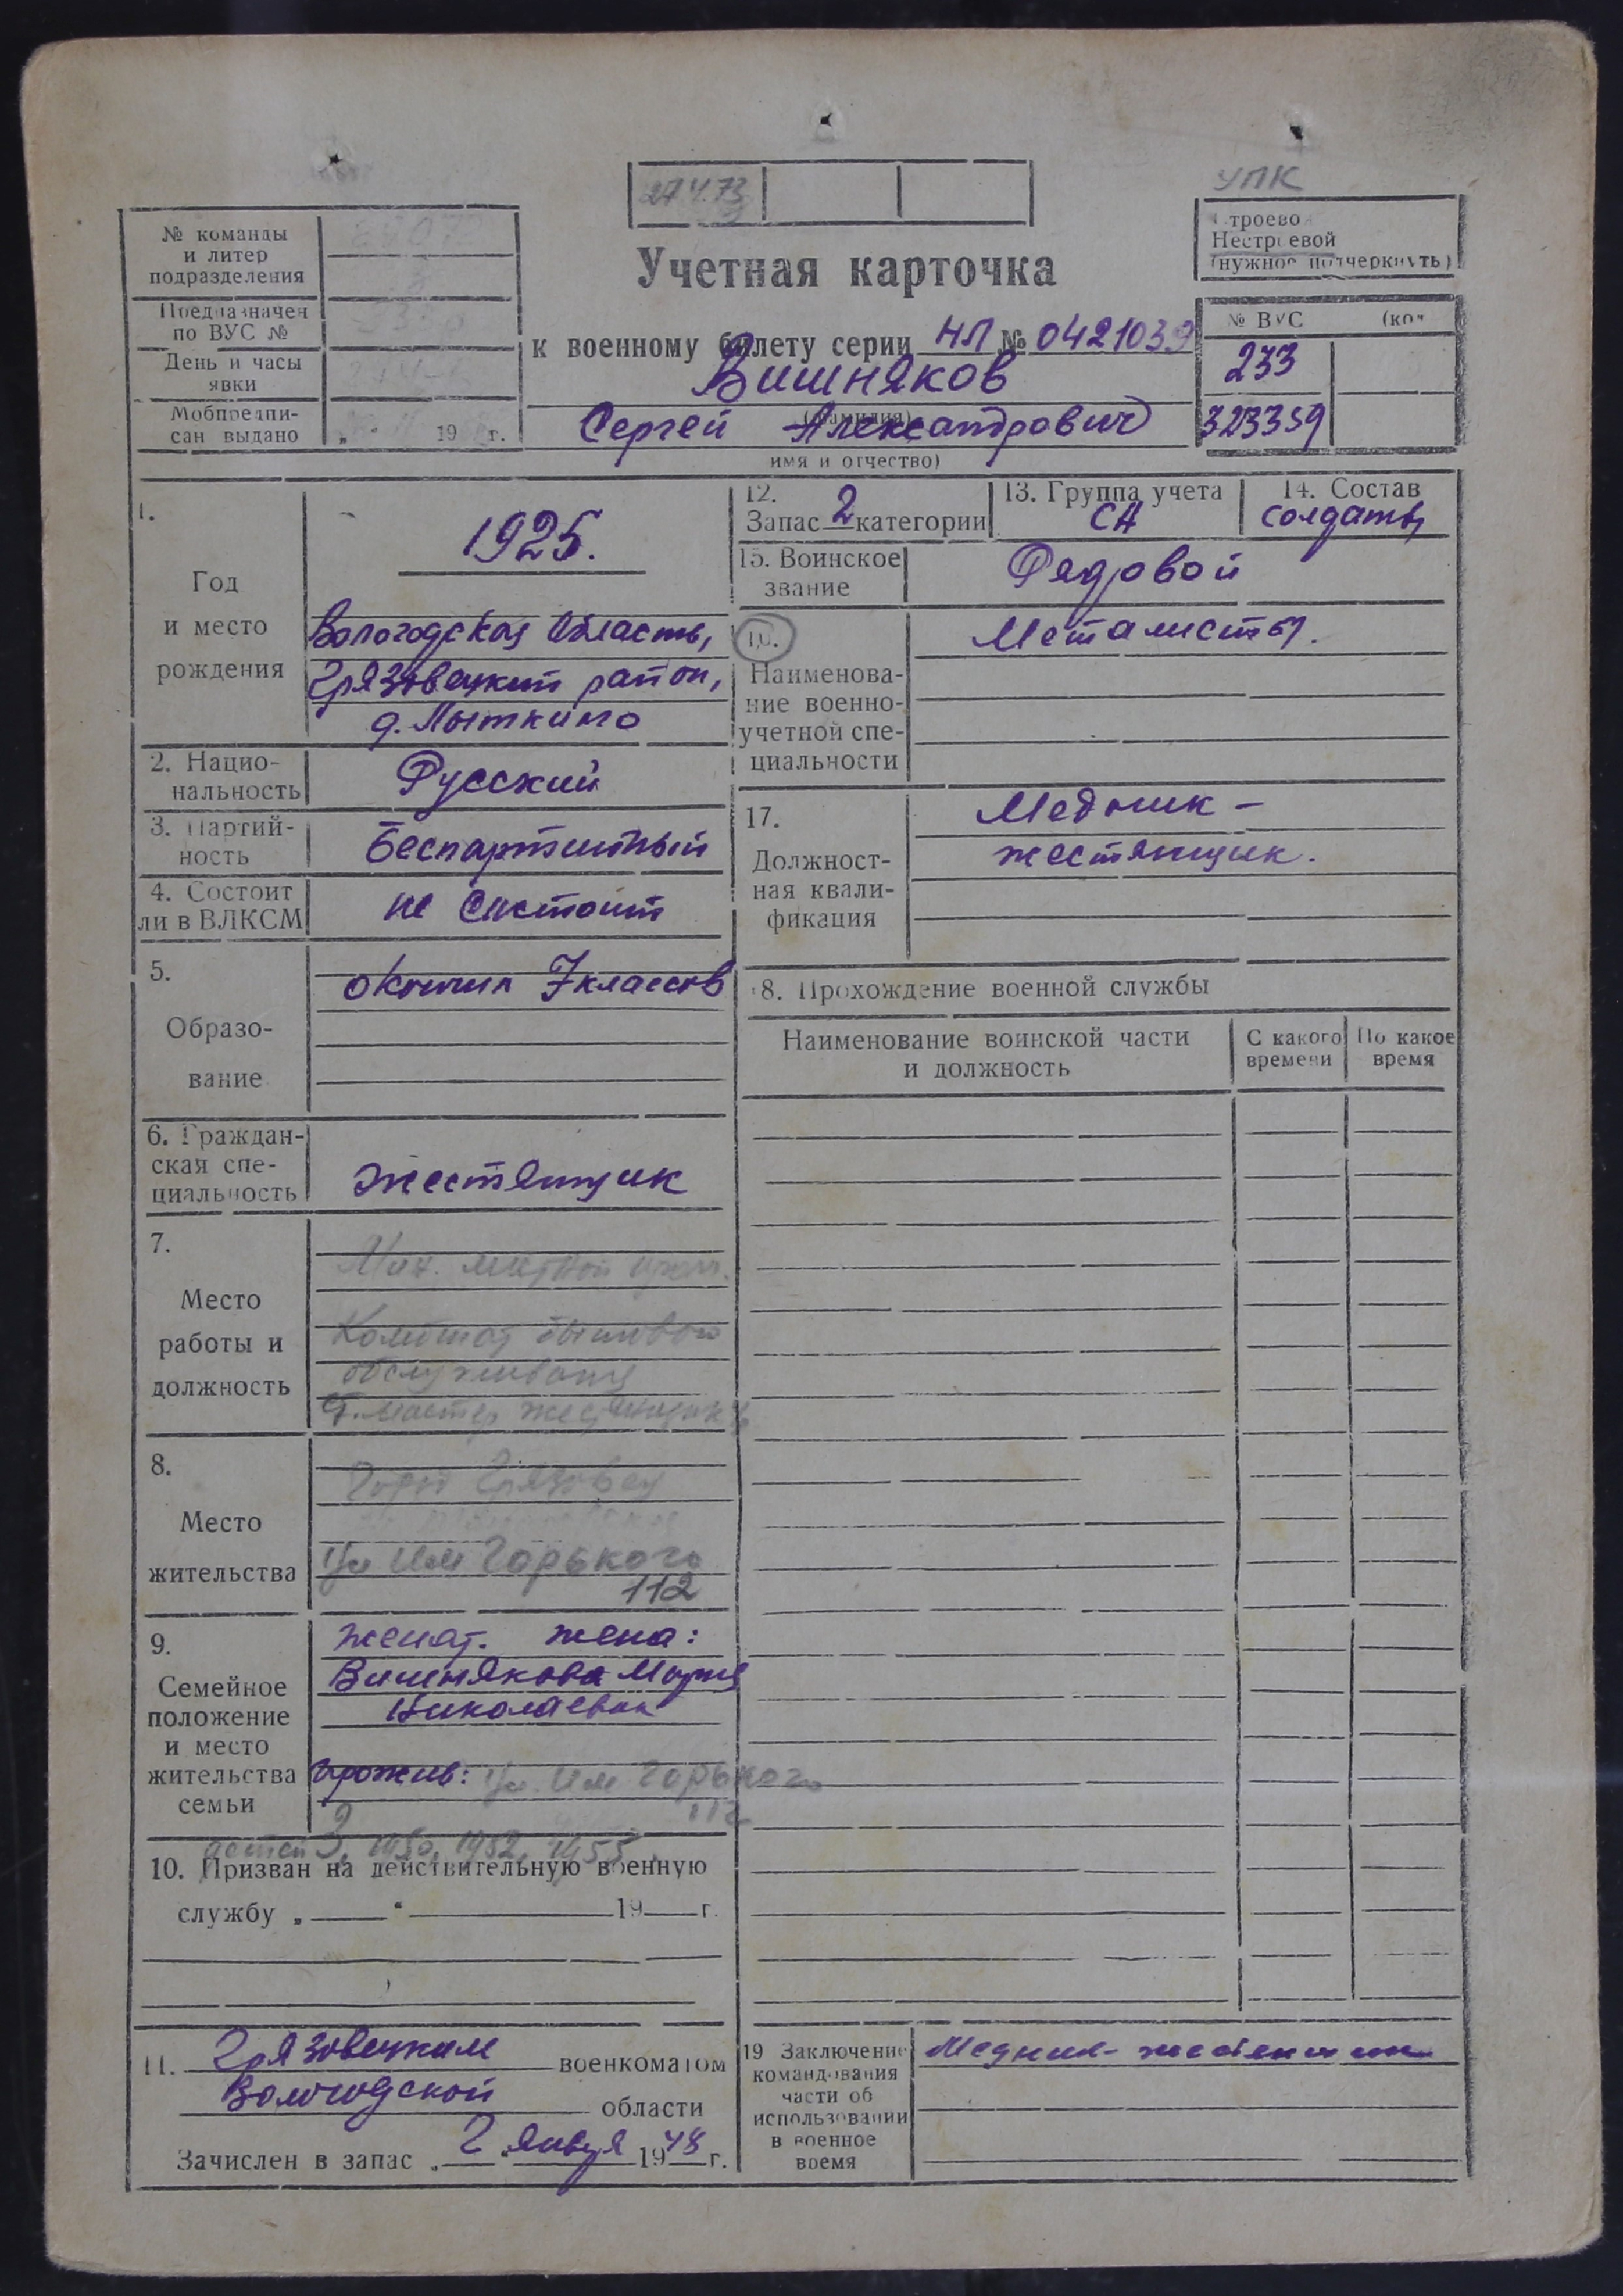 УПК
27.4.73
Строево
Нестроевой
(нужное подчеркнуть)
№ команды
и литер
подразделения
Предназначен
по ВУС №
День и часы
явки
Мобпредпи-
сан выдано „ “ 19 г.
Учетная карточка
к военному билету серии НЛ № 0421039
Вишняков
(фамилия)
Сергей Александрович
имя и отчество)
№ ВУС (код
233
323359
1.
Год
и место
рождения
1925.
Вологодская область,
Грязовецкий район,
д. Лыткино
2. Нацио-
нальность
Русский
3. Партий-
ность
Беспартийный
4. Состоит
ли в ВЛКСМ
не состоит
5.
Образо-
вание
окончил 7 классов
6. Граждан-
ская спе-
циальность
жестянщик
7.
Место
работы и
должность
Комбинат бытового
обслуживания
мастер жестянщик
8.
Место
жительства
Город Грязовец
ул им Горького
112
9.
Семейное
положение
и место
жительства
семьи
женат. жена:
Вишнякова Мария
Николаевна
прожив: ул. им Горького
112
детей 3, 1950, 1952, 1955
10. Призван на действительную военную
службу „ “ 19 г.
11. Грязовецким военкоматом
Вологодской области
Зачислен в запас „2“ января 1948 г.
12.
Запас 2 категории
13. Группа учета
СА
14. Состав
солдаты
15. Воинское
звание
Рядовой
16.
Наименова-
ние военно-
учетной спе-
циальности
Металисты.
17.
Должност-
ная квали-
фикация
Медник -
жестянщик.
18. Прохождение военной службы
Наименование воинской части
и должность
С какого
времени
По какое
время
19 Заключение
командования
части об
использовании
в военное
время
Медник-жестянщик